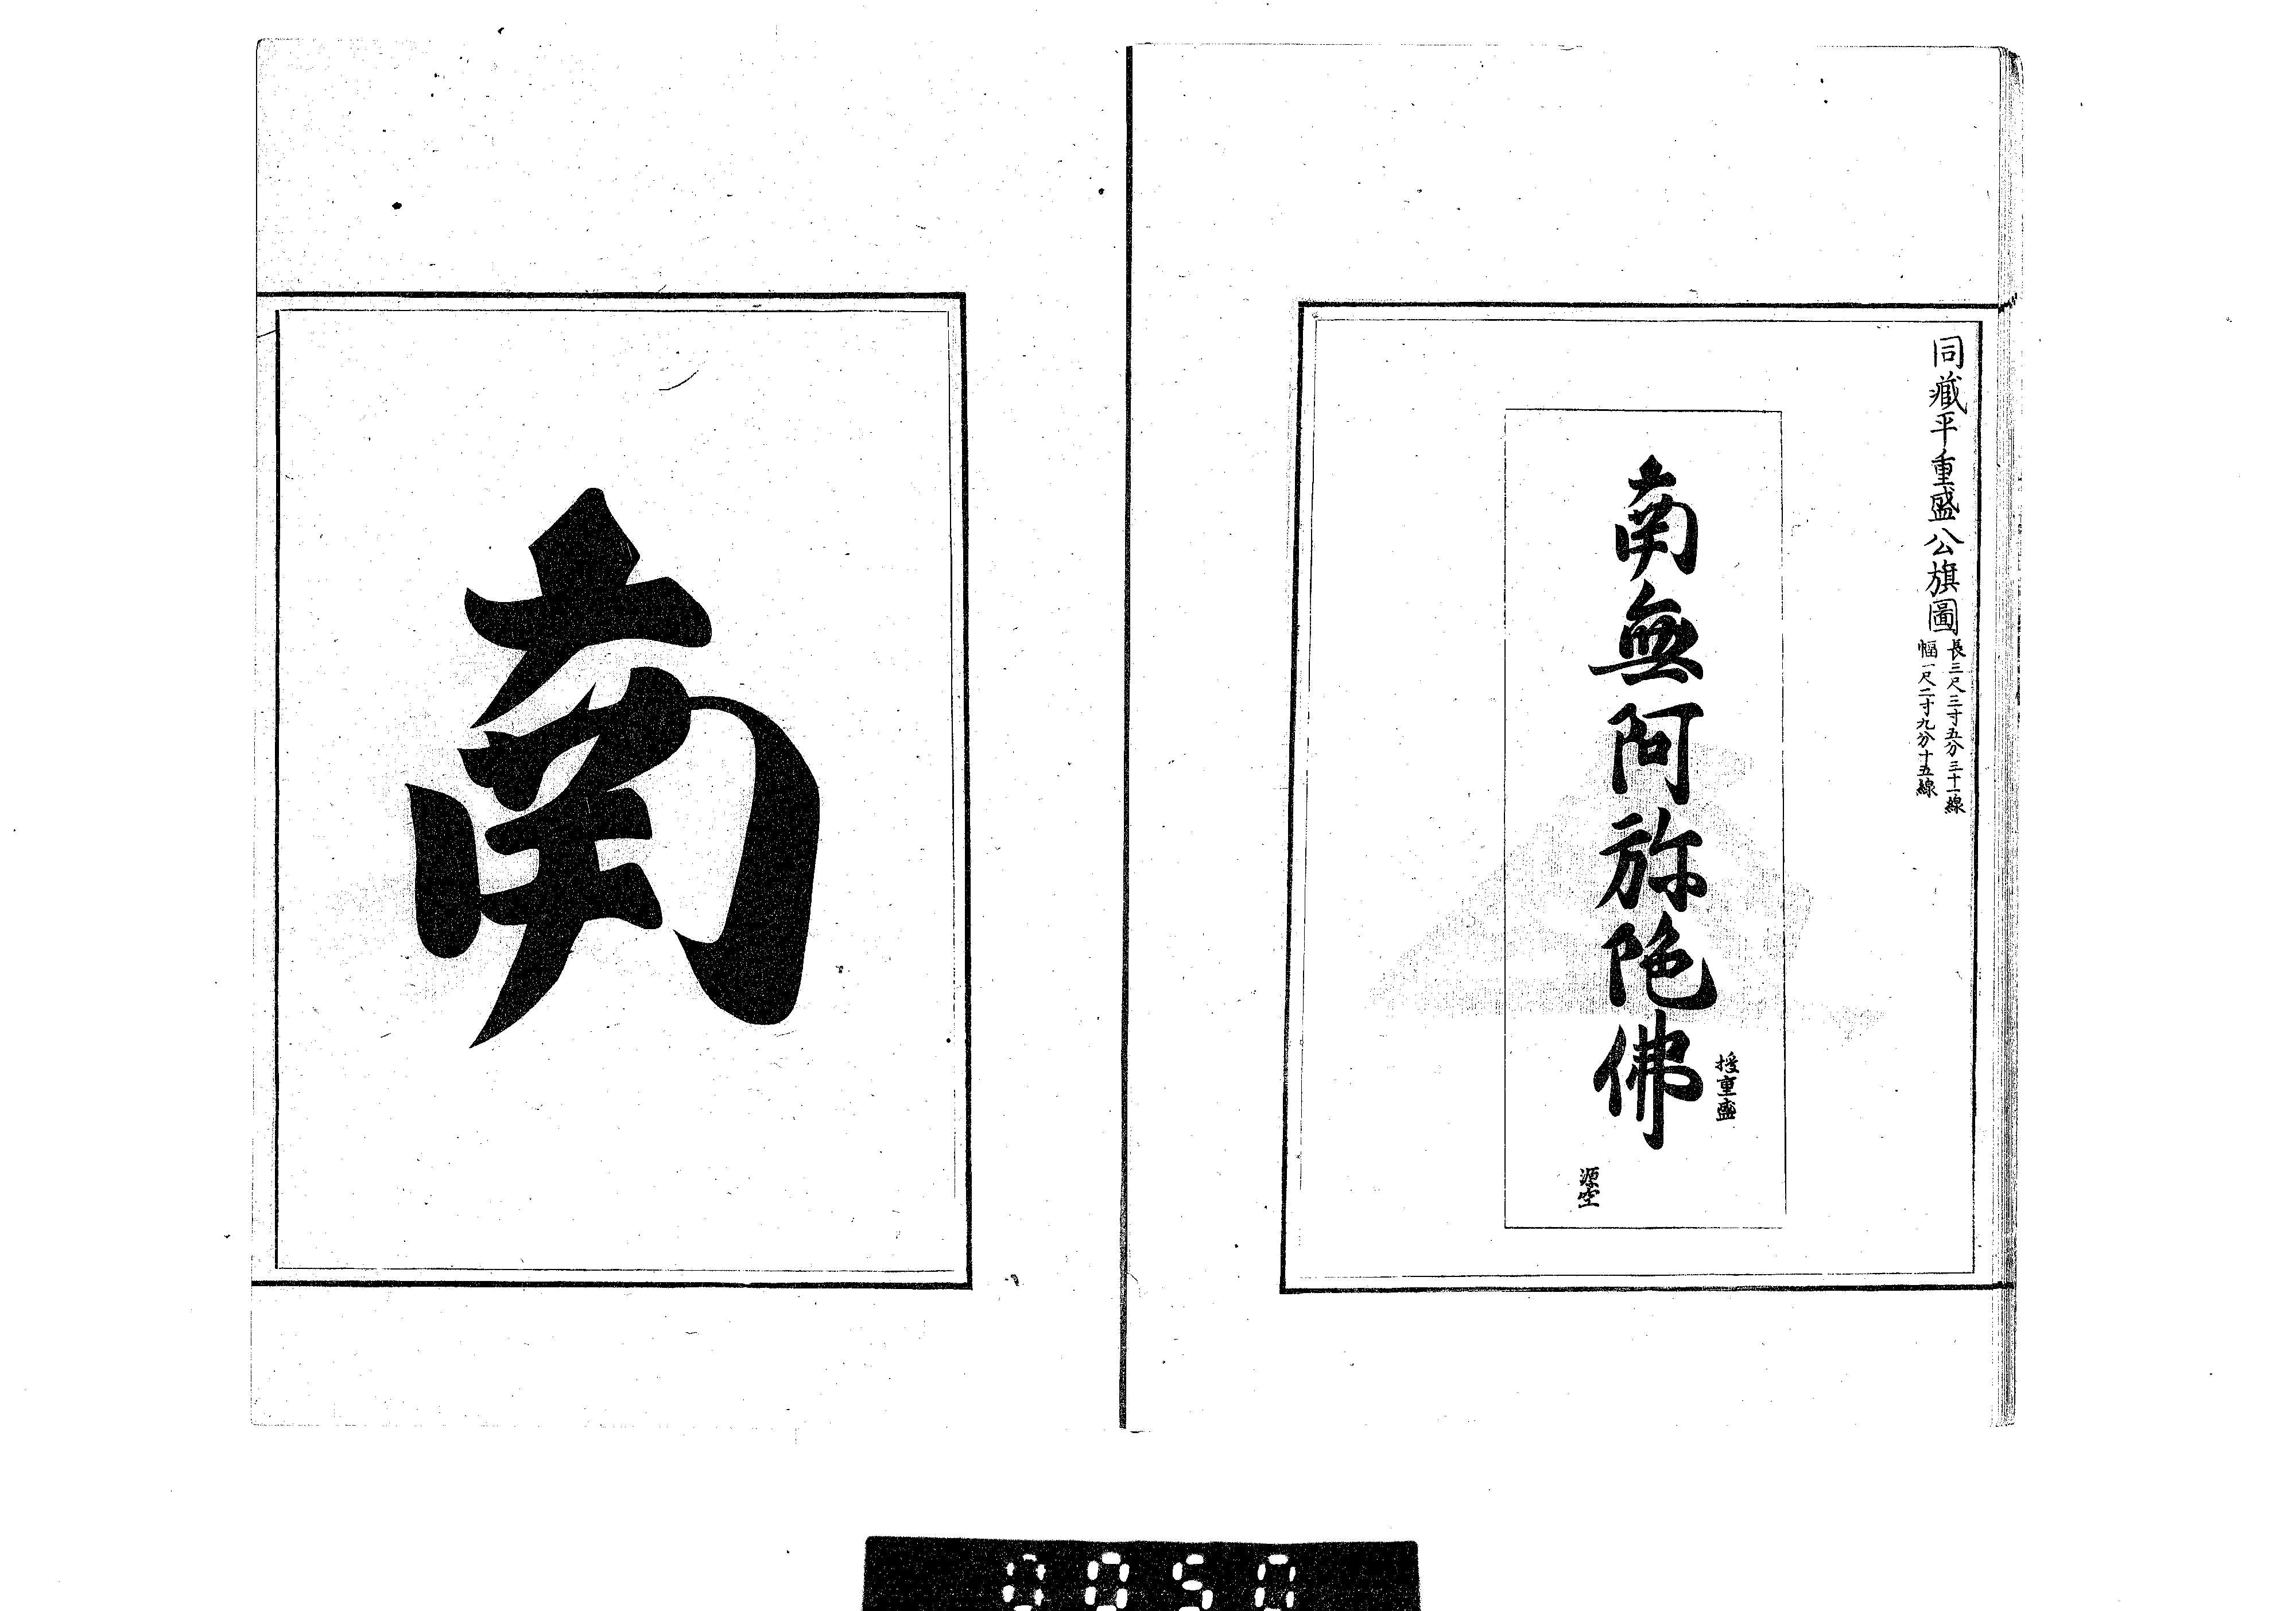 同藏平重盛公旗圖
長三尺三寸五分三十一線
幅一尺二寸九分十五線
授重盛
南無阿弥陀佛
源空
南
0050